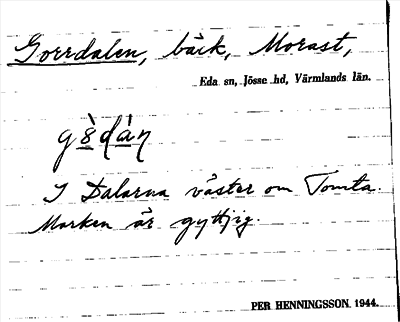 Gorrdalen, bäck, Morast,
Eda sn, Jösse hd, Värmlands län.
I Dalarna väster om Tomta.
Marken är gyttjig.
PER HENNINGSSON. 1944.